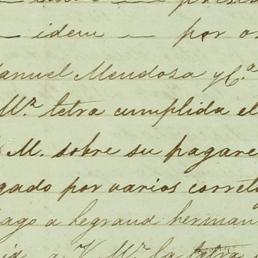 idem — por o
anuel Mendosa y C.ª
M.ª letra cumplida el
M. sobre su pagare
gado por varios corret
ago a legrand herman
a V. M.ª la letra